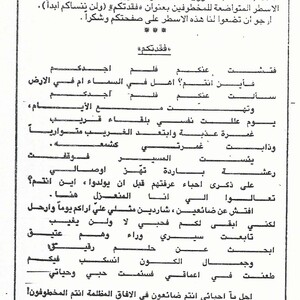 الاسطر المتواضعة للمخطوفين بعنوان «فقدتكم» (ولن ننساكم أبداً).
أرجو أن تضعوا لنا هذه الاسطر على صفحتكم وشكراً.
* * *
«فقدتكم»
فتشت عنكم فلم اجدكم
فأين انتم؟ اهل في السماء ام في الارض
سألت عنكم فلم اجدكم
وتهت مع الأيام،
يوم طالت نفسي بلقاء قريب
غمرة عذبة وابتعد الغريب متوارياً
وذابت غمرتي كشمعه.
ينست المسير فوقفت
رعشة باردة تهز اوصالي
على ذكرى احباء عرفتهم قبل ان يولدوا، اين انتم؟
تعالوا الي انا المنعزل هنا.
افتش عن ضائعين، شاردين مثلي عليّ اراكم يوماً وارحل
لكني ابقى لكم فحبي لا ولن يغيب
تابعت سيري وراء وهم عتيق
ابحث عن حلم رقيق
وجمال الكون انسكب فيكم
طعنت في اعماقي فسنعت حبي وحياتي
اجل يا احبائي انتم ضائعون في الافاق المظلمة انتم المخطوفون!